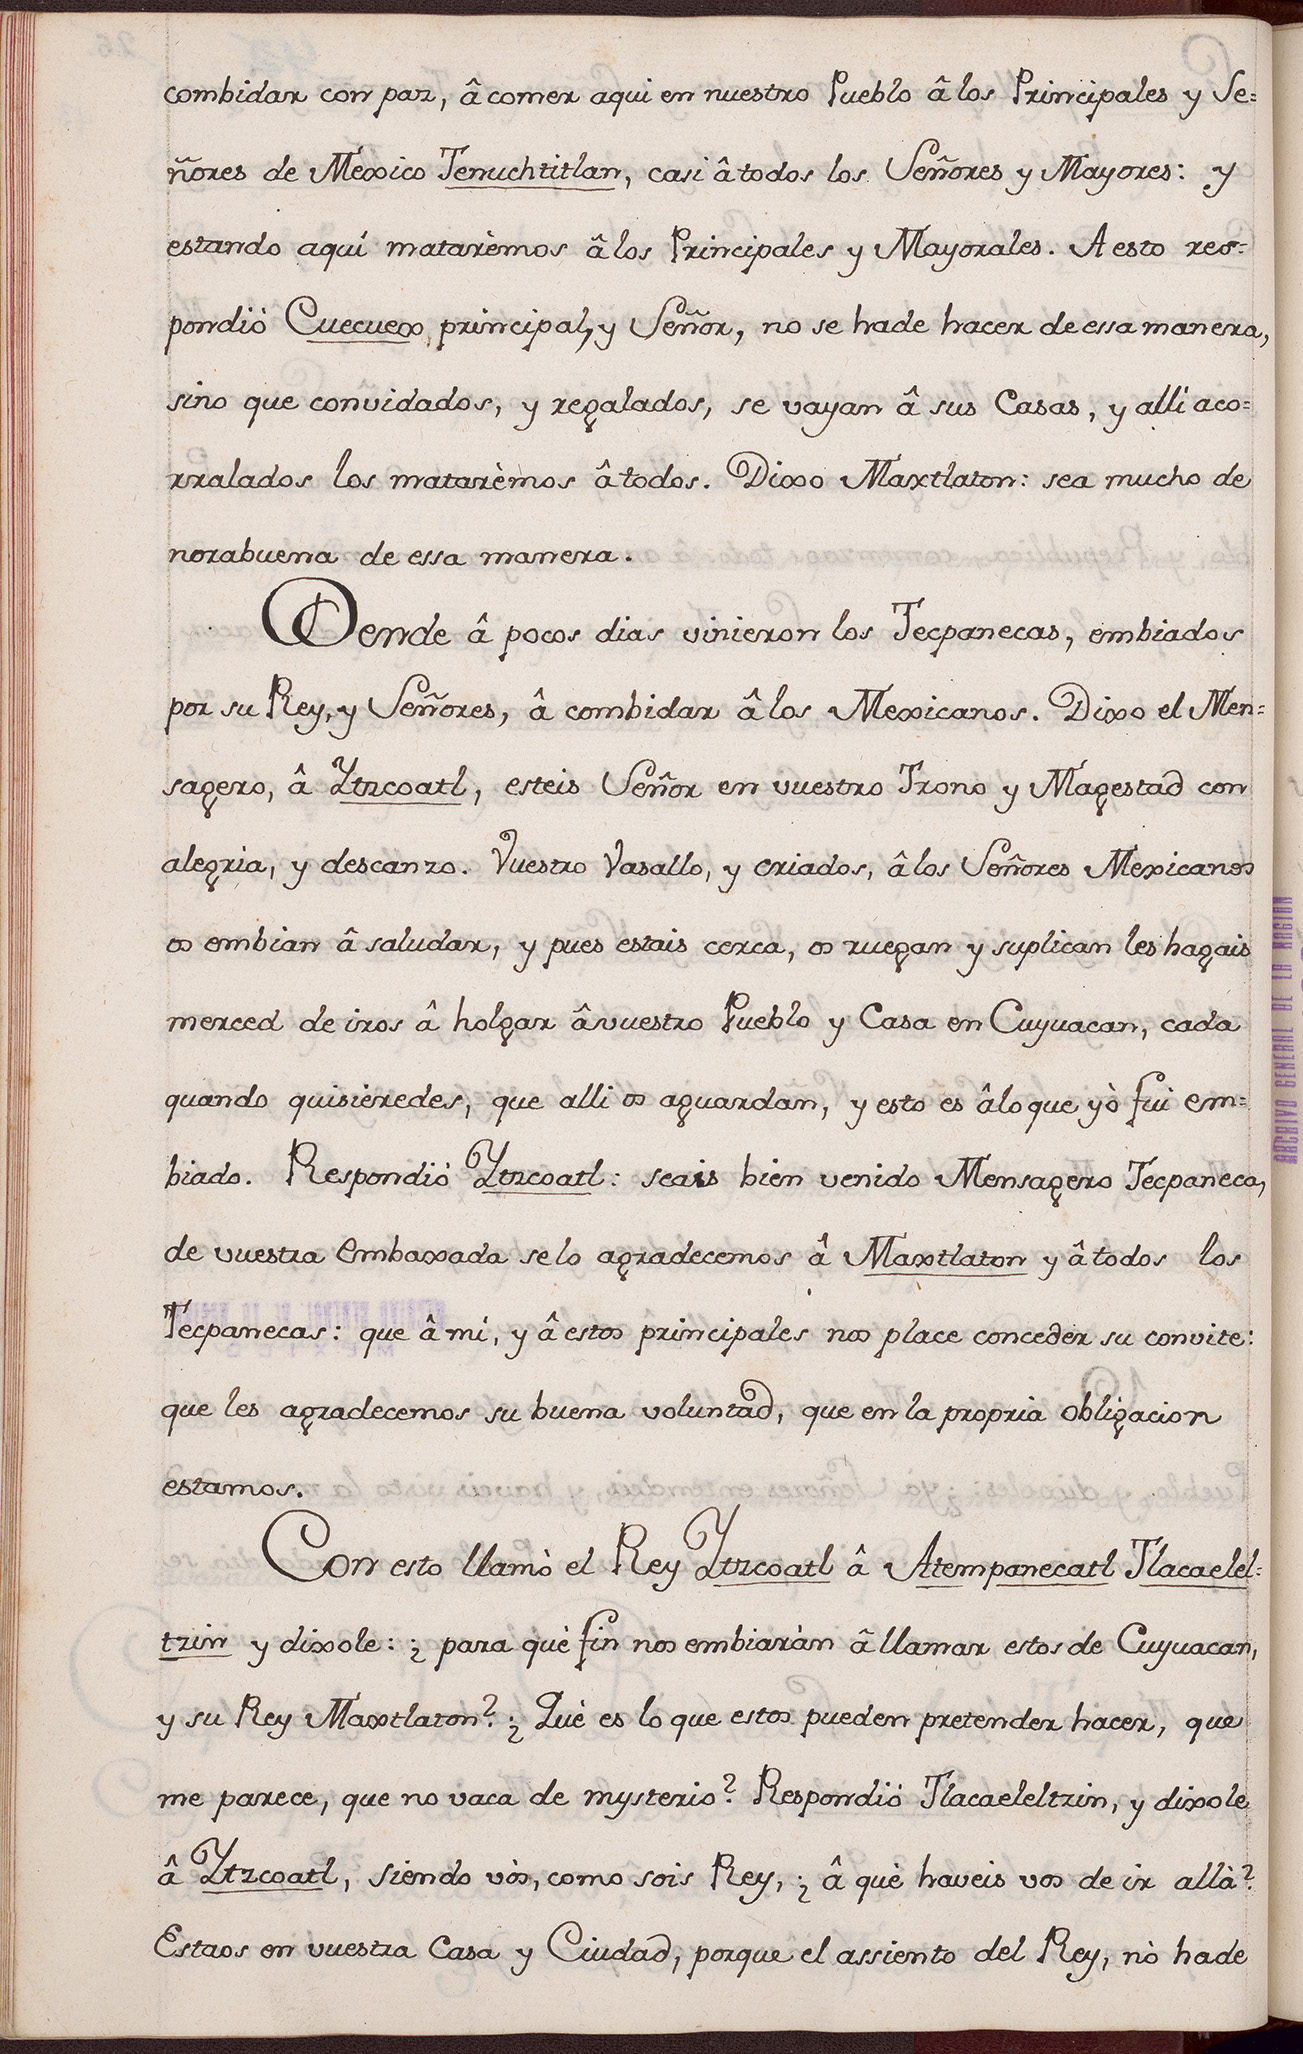 combidar con paz, â comer aqui en nuestro Pueblo â los Principales y Se=
ñores de México Tenuchtitlan, casi â todos los Señores y Mayores: y
estando aquí matarèmos â los Principales y Mayorales. A esto res=
pondió Cuecuex, principal, y Señor, no se hade hacer de essa manera,
sino que convidados, y regalados, se vayan â sus Casas, y allí aco=
rralados los matarèmos â todos. Dixo Maxtlaton: sea mucho de
norabuena de essa manera.
Dende â pocos dias vinieron los Tecpanecas, embiados
por su Rey, y Señores, â combidar â los Mexicanos. Dixo el Men=
sagero, â Ytzcoatl, esteis Señor en vuestro Trono y Magestad con
alegria, y descanzo. Vuestro Vasallo, y criados, â los Señores Mexicanos
os embian â saludar, y pues estais cerca, os ruegan y suplican les hagais
merced de iros â holgar â vuestro Pueblo y Casa en Cuyuacan, cada
quando quisieredes, que alli os aguardan, y esto es âlo que yò fui em=
biado. Respondió Ytzcoatl: seais bien venido Mensagero Tecpaneca,
de vuestra Embaxada se lo agradecemos â Maxtlaton y â todos los
Tecpanecas: que â mí, y â estos principales nos place conceder su convite:
que les agradecemos su buena voluntad, que en la propria obligacion
estamos.
Con esto llamò el Rey Ytzcoatl â Atempanecatl Tlacaelel=
tzin y dixole: ¿ para què fin nos embiaràn â llamar estos de Cuyuacan,
y su Rey Maxtlaton? ¿ Què es lo que estos pueden pretender hacer, que
me parece, que no vaca de mysterio? Respondió Tlacaeleltzin, y dixole
â Ytzcoatl, siendo vòs, como sois Rey, ¿ â què haveis vos de ir allà?
Estaos en vuestra Casa y Ciudad, porque el assiento del Rey, nò hade
ARCHIVO GENERAL DE LA NACION